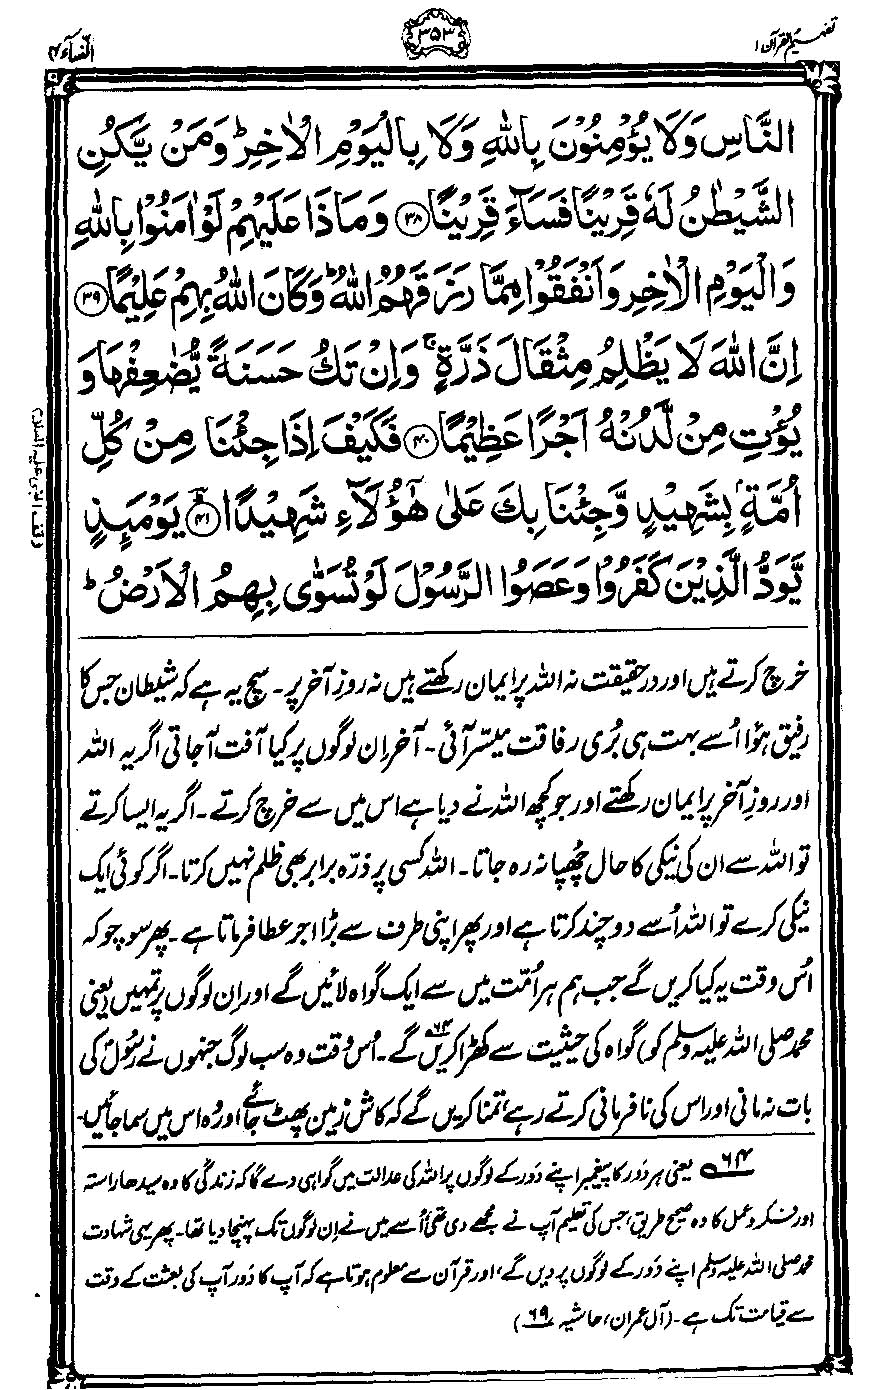 تفہیم القرآن ۱
۳۵۳
النسآء ۴
النَّاسِ وَلَا يُؤْمِنُوْنَ بِاللّٰهِ وَلَا بِالْيَوْمِ الْاٰخِرِ ؕ وَمَنْ يَّكُنِ
الشَّيْطٰنُ لَهٗ قَرِيْنًا فَسَآءَ قَرِيْنًا ﴿۳۸﴾ وَمَاذَا عَلَيْهِمْ لَوْ اٰمَنُوْا بِاللّٰهِ
وَالْيَوْمِ الْاٰخِرِ وَاَنْفَقُوْا مِمَّا رَزَقَهُمُ اللّٰهُ ؕ وَكَانَ اللّٰهُ بِهِمْ عَلِيْمًا ﴿۳۹﴾
اِنَّ اللّٰهَ لَا يَظْلِمُ مِثْقَالَ ذَرَّةٍ ۚ وَاِنْ تَكُ حَسَنَةً يُّضٰعِفْهَا وَ
يُؤْتِ مِنْ لَّدُنْهُ اَجْرًا عَظِيْمًا ﴿۴۰﴾ فَكَيْفَ اِذَا جِئْنَا مِنْ كُلِّ
اُمَّةٍۭ بِشَهِيْدٍ وَّجِئْنَا بِكَ عَلٰى هٰٓؤُلَآءِ شَهِيْدًا ﴿۴۱﴾ يَوْمَىِٕذٍ
يَّوَدُّ الَّذِيْنَ كَفَرُوْا وَعَصَوُا الرَّسُوْلَ لَوْ تُسَوّٰى بِهِمُ الْاَرْضُ ؕ
وقف النبی علیہ السلام
خرچ کرتے ہیں اور درحقیقت نہ اللہ پر ایمان رکھتے ہیں نہ روزِ آخر پر۔ سچ یہ ہے کہ شیطان جس کا
رفیق ہوٴا اُسے بہت ہی بُری رفاقت میسّر آئی۔ آخر اِن لوگوں پر کیا آفت آجاتی اگر یہ اللہ
اور روزِ آخر پر ایمان رکھتے اور جو کچھ اللہ نے دیا ہے اس میں سے خرچ کرتے۔ اگر یہ ایسا کرتے
تو اللہ سے ان کی نیکی کا حال چُھپا نہ رہ جاتا۔ اللہ کسی پر ذرّہ برابر بھی ظلم نہیں کرتا۔ اگر کوئی ایک
نیکی کرے تو اللہ اُسے دو چند کرتا ہے اور پھر اپنی طرف سے بڑا اجر عطا فرماتا ہے۔ پھر سوچو کہ
اُس وقت یہ کیا کریں گے جب ہم ہر اُمّت میں سے ایک گواہ لائیں گے اور اِن لوگوں پر تمہیں (یعنی
محمد صلی اللہ علیہ وسلم کو) گواہ کی حیثیت سے کھڑا کریں ۶۴ گے۔ اُس وقت وہ سب لوگ جنہوں نے رسُولؐ کی
بات نہ مانی اور اس کی نافرمانی کرتے رہے، تمنا کریں گے کہ کاش زمین پھٹ جائے اور وہ اس میں سما جائیں۔
۶۴ یعنی ہر دَور کا پیغمبر اپنے دَور کے لوگوں پر اللہ کی عدالت میں گواہی دے گا کہ زندگی کا وہ سیدھا راستہ
اور فکر و عمل کا وہ صحیح طریق، جس کی تعلیم آپ نے مجھے دی تھی، اُسے میں نے اِن لوگوں تک پہنچا دیا تھا۔ پھر یہی شہادت
محمد صلی اللہ علیہ وسلم اپنے دَور کے لوگوں پر دیں گے، اور قرآن سے معلوم ہوتا ہے کہ آپ کا دَور آپ کی بعثت کے وقت
سے قیامت تک ہے۔ (آل عمران، حاشیہ ۶۹)